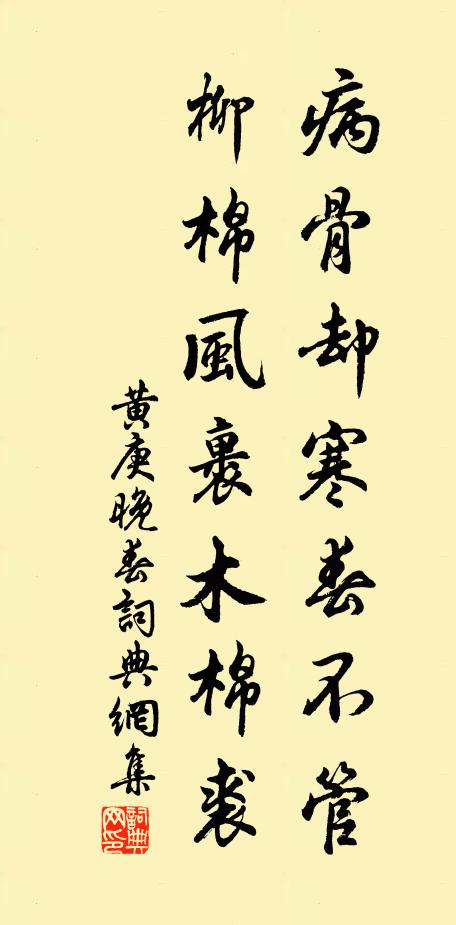 病骨却寒春不管
柳棉風裏木棉裘
黃庚晚春詞典網集
詞典網印